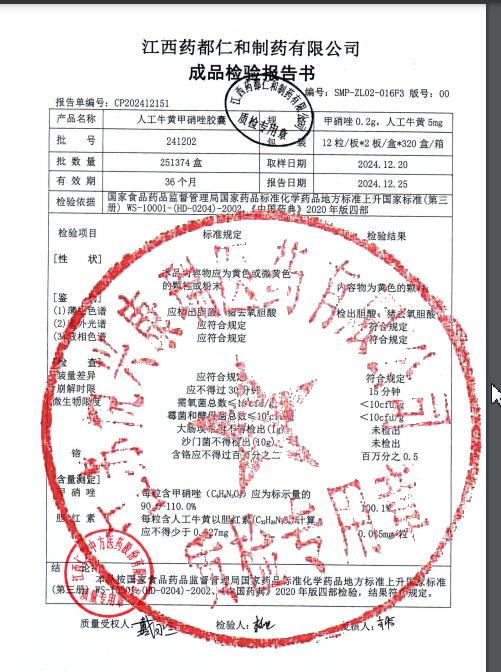 江西药都仁和制药有限公司
成品检验报告书
编号：SMP-ZL02-016F3 版号：00
报告单编号：CP202412151
产品名称 人工牛黄甲硝唑胶囊 规 甲硝唑 0.2g，人工牛黄 5mg
批 号 241202 包 装 12 粒/板*2 板/盒*320 盒/箱
批 数 量 251374 盒 取样日期 2024.12.20
有 效 期 36 个月 报告日期 2024.12.25
检验依据 国家食品药品监督管理局国家药品标准化学药品地方标准上升国家标准(第三
册) WS-10001-(HD-0204)-2002、《中国药典》2020 年版四部
检验项目 标准规定 检验结果
[性 状]
本品内容物应为黄色或微黄色
的颗粒或粉末 内容物为黄色的颗粒
[鉴
(1)薄 色谱 应检出胆酸、猪去氧胆酸 检出胆酸、猪去氧胆酸
(2) 外光谱 应符合规定 符合规定
(3)液相色谱 应符合规定 符合规定
检 查
装量差异 应符合规定 符合规定
崩解时限 应不得过 30 分钟 15 分钟
微生物限度 需氧菌总数≤ cfu/g <10cfu/g
霉菌和酵母菌总数≤ cfu/g <10cfu/g
大肠埃希菌不得检出(1g) 未检出
沙门菌不得检出(10g) 未检出
铬 含铬应不得过百万分之二 百万分之 0.5
含量测定]
甲 硝 唑 每粒含甲硝唑 应为标示量的
90.0-110.0% 100.1%
胆 红 素 每粒含人工牛黄以胆红素 计算
应不得少于 27mg mg/粒
结 论：
本品按国家食品药品监督管理局国家药品标准化学药品地方标准上升国家标准
(第三册) WS-10001-(HD-0204)-2002、《中国药典》2020 年版四部检验，结果符合规定。
质量受权人： 检验人： 复核人：
江西药都仁和制药有限公司
质检专用章
质检专用章